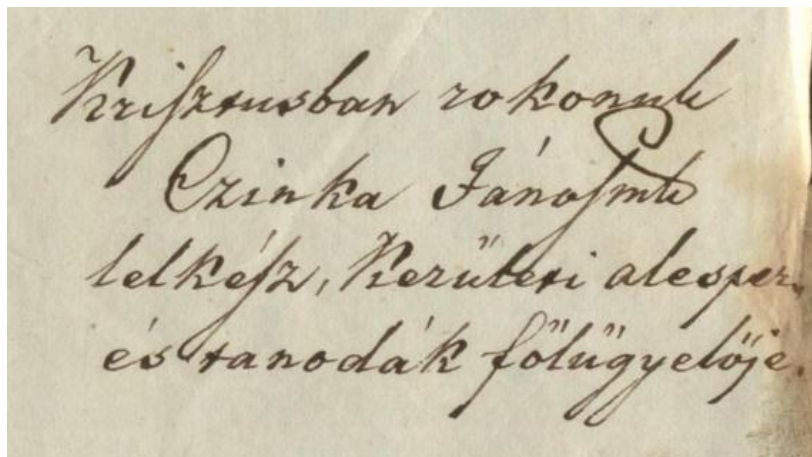 Krisztusban rokonuk
Czinka János mk
lelkész, Kerűleti alesper.
és tanodák fölűgyelője.